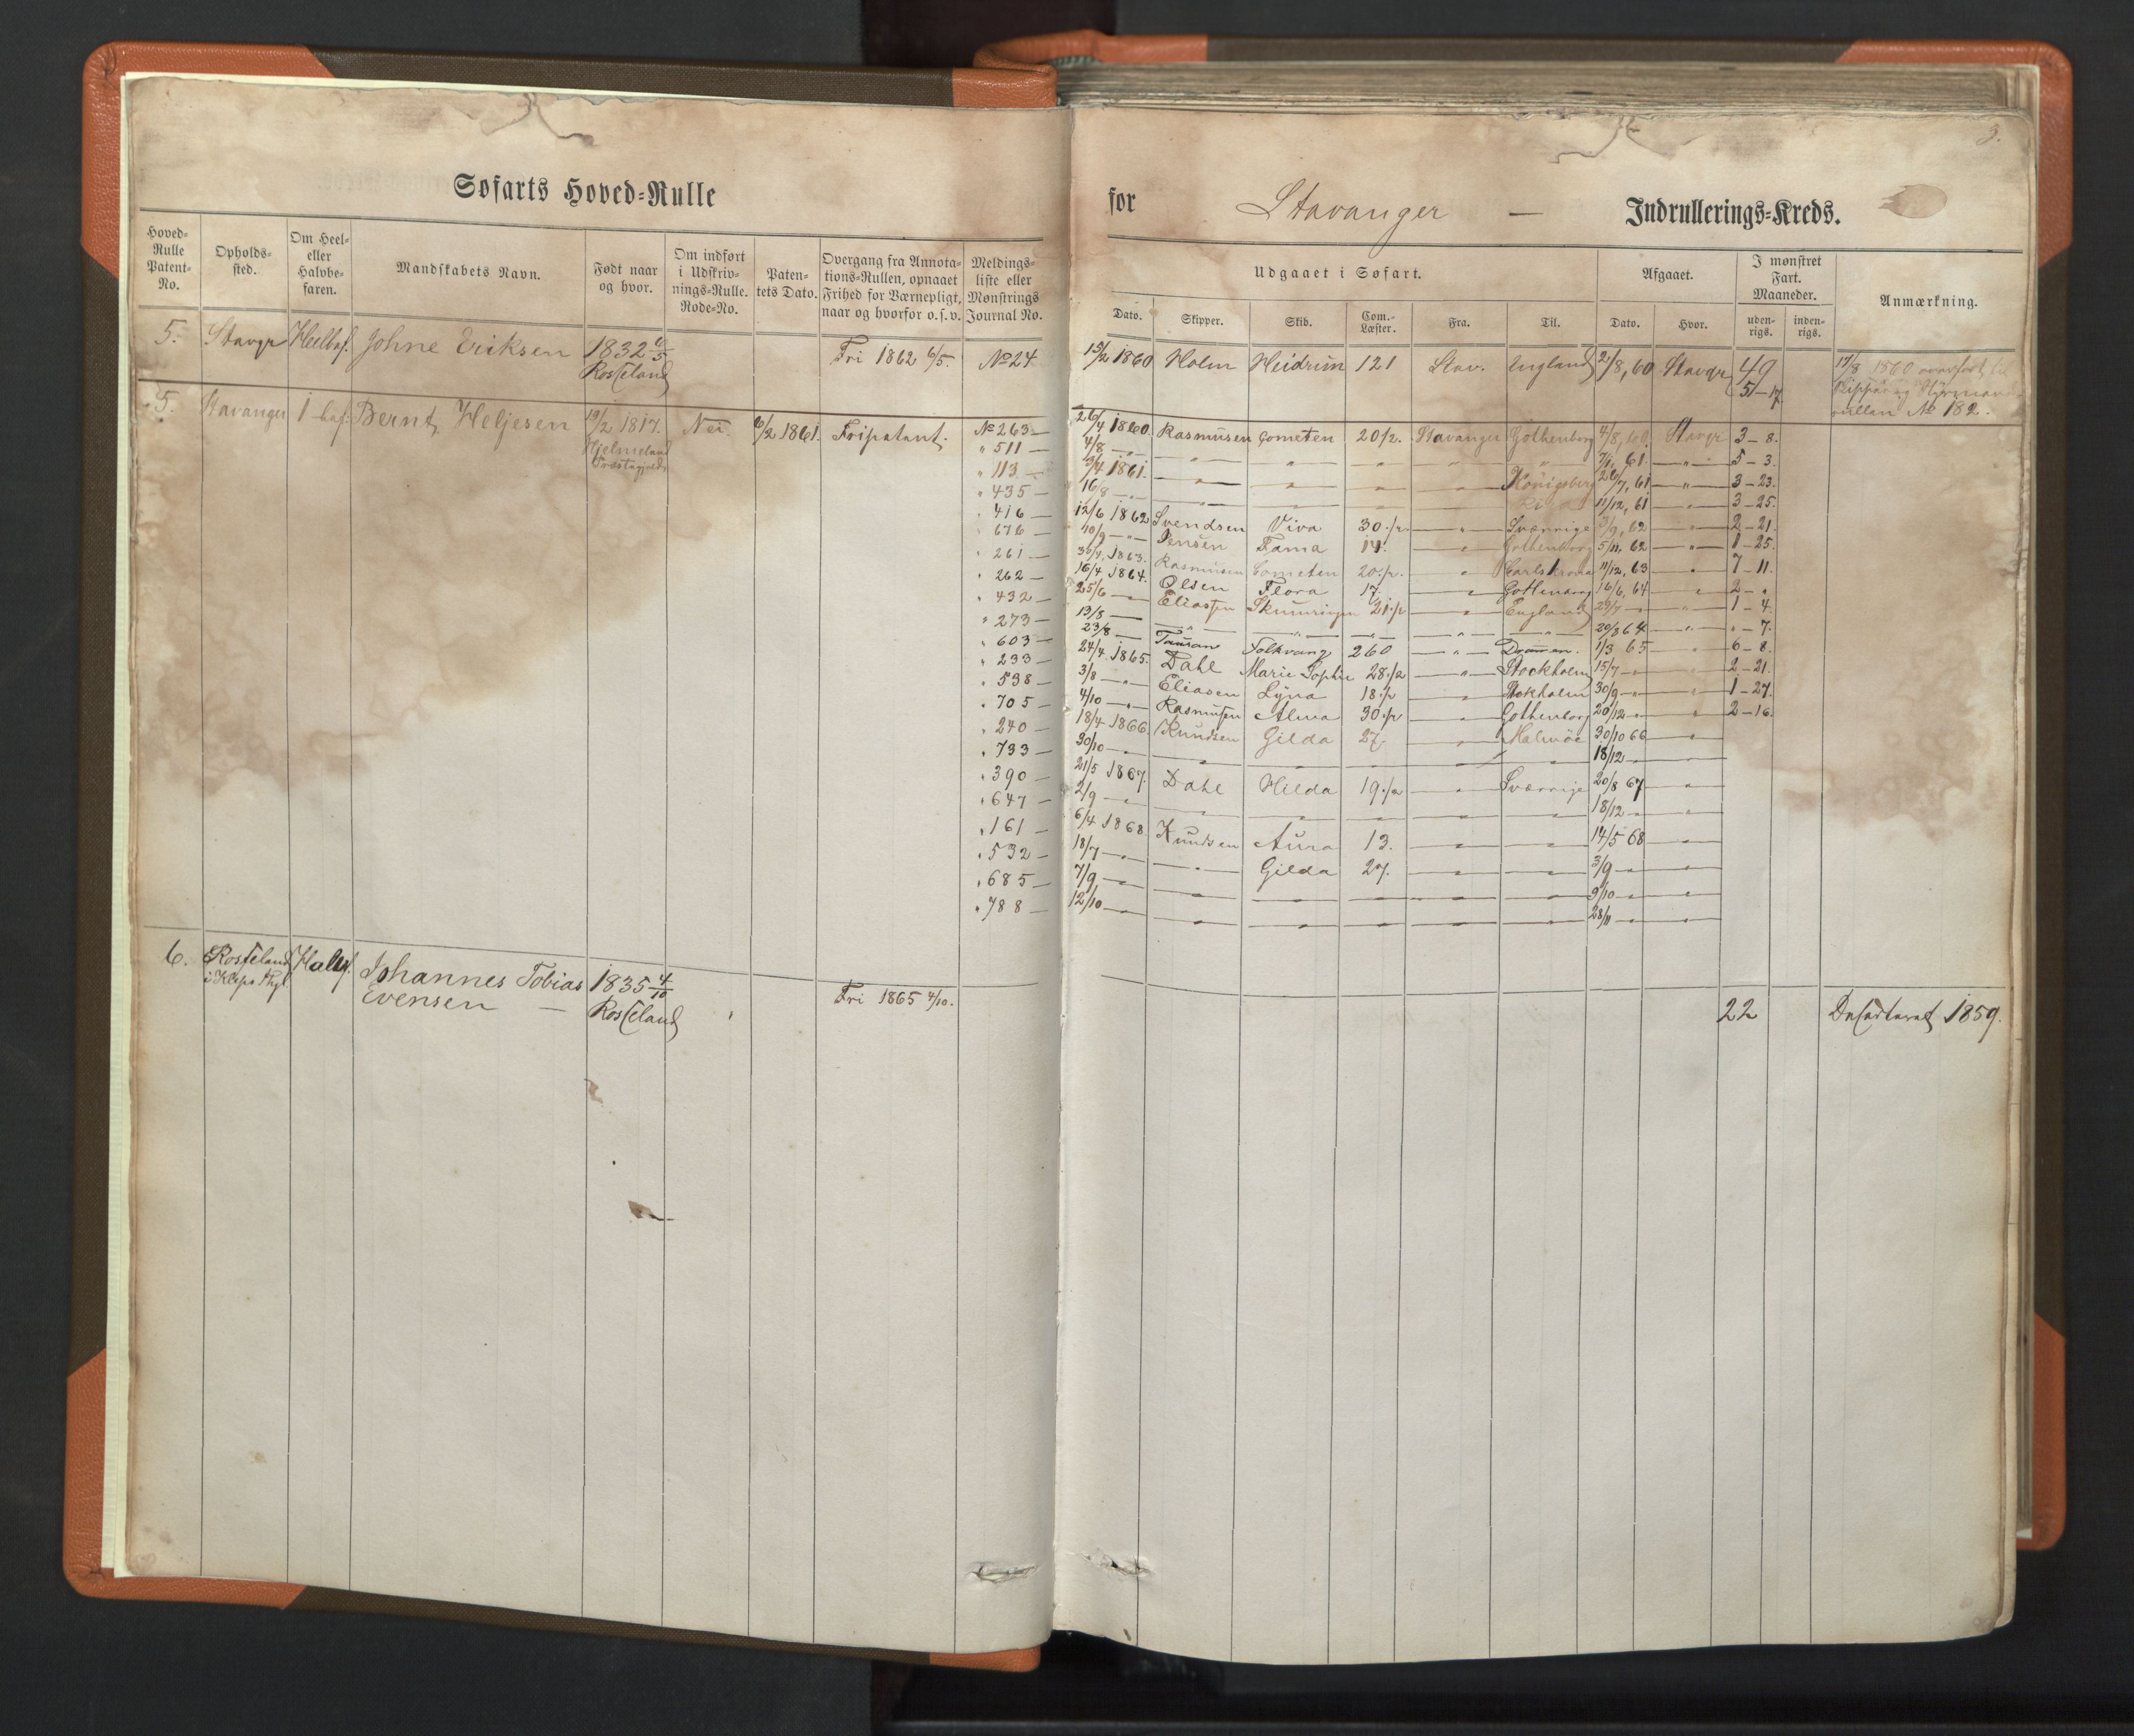 3.
Søfarts Hoved=Rulle for Stavanger — Indrullerings=Kreds.
Hoved=Rulle Patent=No. | Opholds=sted. | Om Heel= eller Halvbe=faren. | Mandskabets Navn. | Født naar og hvor. | Om indført i Udskriv=nings=Rulle. Rode=No. | Paten=tets Dato. | Overgang fra Annota=tions=Rullen, opnaaet Frihed for Værnepligt, naar og hvorfor o. s. v. | Meldings=liste eller Mønstrings Journal No. | Udgaaet i Søfart. | Afgaaet. | I mønstret Fart. Maaneder. | Anmærkning.
Dato. | Skipper. | Skib. | Com.=Læster. | Fra. | Til. | Dato. | Hvor. | uden=rigs. | inden=rigs.
5. Stavgr Heelbef. Johne Eriksen 1832 6/5 Rosseland Fri 1862 6/5. No 24 15/2 1860 Holm Heidrun 121 Stav. England 2/8, 60 Stavgr 49
5–17 17/8 1860 overført til
rullen No 182.
5. Stavanger 1 bef. Bernt Heljesen 19/2 1817. Hjelmeland Præstegjeld Nei. 6/2 1861. Fripatent. No 263 — 26/4 1860. Rasmussen Cometen 20 1/2. Stavanger Gothenborg 4/8, 60. Stavgr 3–8.
" 511 — 4/8 — " — " " " " " 7/1, 61. — " — 5–3.
" 113 — 3/4 1861. " " " " Königsberg 26/7, 61 — " — 3–23.
" 435 — 16/8 — " — " " " " 11/12, 61 " 3–25.
" 416 — 12/6 1862 Svendsen Viva 30 1/2 " Sverrige 3/9, 62 " 2–21.
" 676 — 10/9 — " — Jensen Fama 14. " Gothenborg 5/11, 62 " 1–25.
" 261 — 30/4, 1863. Rasmussen Cometen 20 1/2. " Carlskrona 11/12, 63 " 7–11.
" 262 — 16/4 1864. Olsen Flora 17. " Gothenborg 16/6, 64 " 2–"
" 432 — 25/6 — Eliassen 21 1/2 " England 29/7 — " 1–4.
" 273 — 13/8 — " " " " " 20/8 64 " "–7.
" 603 — 23/8 — Folkvang 260 " Drammen. 1/3 65 " 6–8.
" 233 — 24/4 1865. Dahl Marie Sophie 28 1/2 " Stockholm 15/7 — " 2–21.
" 538 — 3/8 — " — Eliasen Lÿna 18 1/2 " Stokholm 30/9 — " — " 1–27.
" 705 — 4/10 — " — Rasmussen Alma 30 1/2 " Gothenborg 20/12 — " 2–16.
" 240 — 18/4 1866. Knudsen Gilda 27. " Malmöe 30/10 66 "
" 733 — 30/10 — " " " " " " 18/12 —
" 390 — 21/5 1867. Dahl Hilda 19 1/2 " Sverrige 20/8 67 "
" 647 — 2/9 — " " " " " " 18/12 — "
" 161 — 6/4 1868 Knudsen Aura 13. " " 14/5 68 "
" 532 — 18/7 — " " Gilda 27. " " 3/9 — " "
" 685 — 7/9 — " " " " " " 9/10 — " "
" 788 — 12/10 — " " " " " " 28/11 — " "
6. Rosseland i Kleps Pgj. Halvf. Johannes Tobias Evensen — 1835 4/10 Rosseland Fri 1865 4/10. 22 Deserteret 1859.